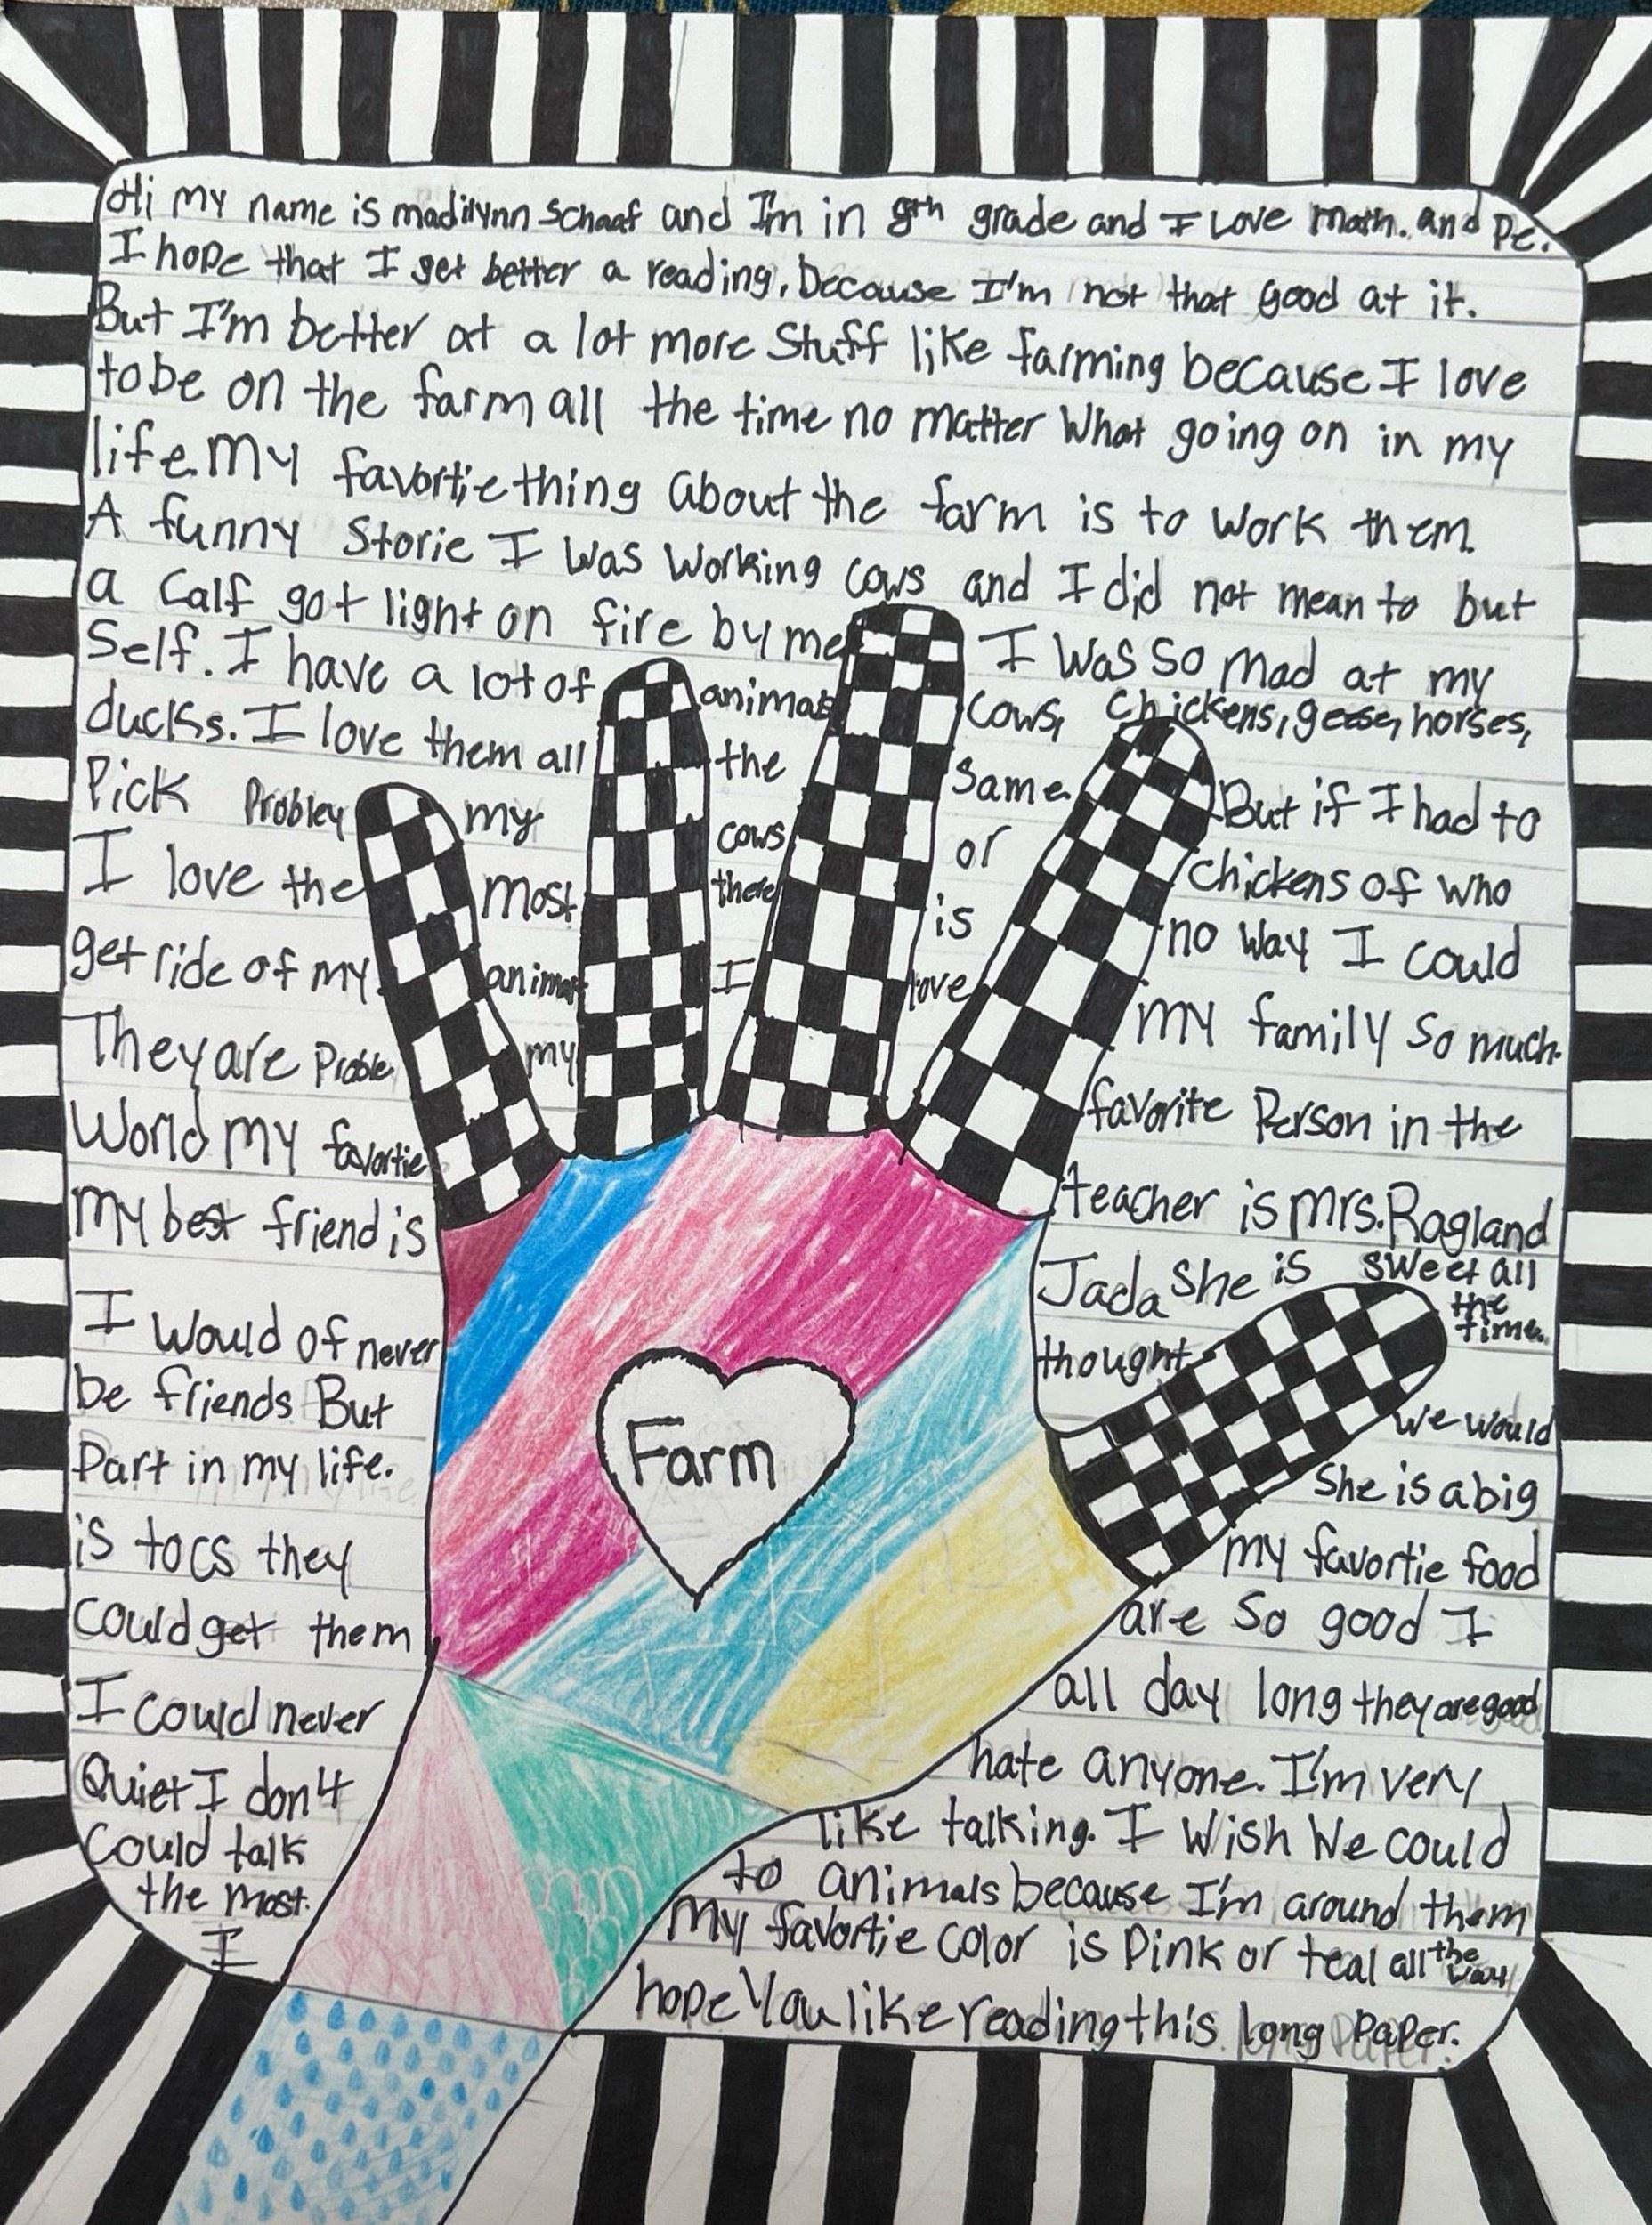 Hi my name is madilynn Schaaf and I'm in 8th grade and I Love math. and Pe.
I hope that I get better a reading, because I'm not that good at it.
But I'm better at a lot more Stuff like farming because I love
to be on the farm all the time no matter What going on in my
life. My favortie thing about the farm is to work them.
A funny Storie I was working cows and I did not mean to but
a Calf got light on fire by me I was so mad at my
Self. I have a lot of animals cows, Chickens, geese, horses,
ducks. I love them all the same. But if I had to
Pick Probley my cows or chickens of who
I love the most. there is no way I could
get ride of my animals I love my family so much.
They are Proble my favorite Person in the
World my favortie teacher is Mrs. Ragland
My best friend is Jada She is sweet all the time.
I would of never thought we would
be friends But She is a big
Part in my life. my favortie food
is tocs they are so good I
Could get them all day long they are good
I could never hate anyone. I'm very
Quiet I don't like talking. I wish We could
Could talk to animals because I'm around them
the most. My favortie color is Pink or teal all the way
I hope You like reading this long Paper.
Farm